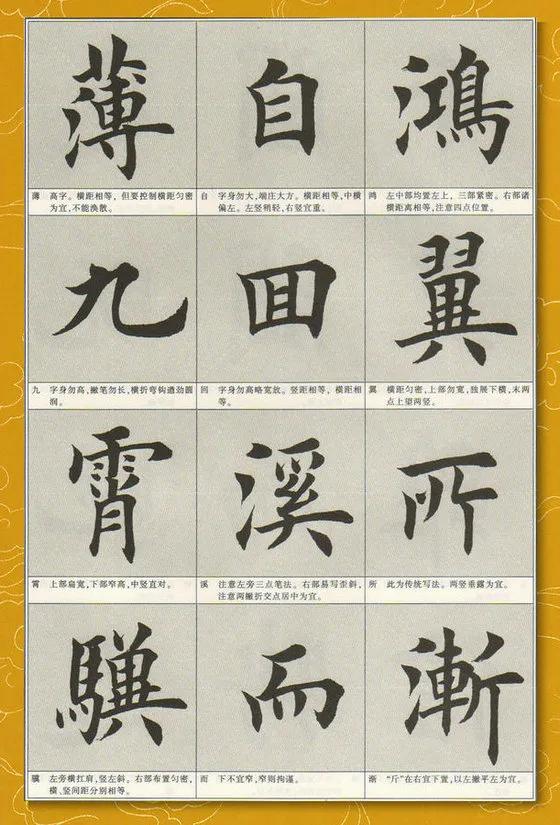 薄
自
鴻
薄 高字。横距相等，但要控制横距匀密
为宜，不能涣散。
自 字身勿大，端庄大方。横距相等，中横
偏左。左竖稍轻，右竖宜重。
鸿 左中部均置左上，三部紧密。右部诸
横距离相等，注意四点位置。
九
囬
翼
九 字身勿高，撇笔勿长，横折弯钩遒劲圆
润。
回 字身勿高略宽放。竖距相等，横距相
等。
翼 横距匀密，上部勿宽，独展下横，末两
点上望两竖。
霄
溪
所
霄 上部扁宽，下部窄高，中竖直对。
溪 注意左旁三点笔法。右部易写歪斜，
注意两撇折交点居中为宜。
所 此为传统写法。两竖垂露为宜。
驥
而
漸
骥 左旁横扛肩，竖左斜。右部布置匀密，
横、竖间距分别相等。
而 下不宜窄，窄则拘谨。
渐 “斤”在右宜下置，以左撇平左为宜。